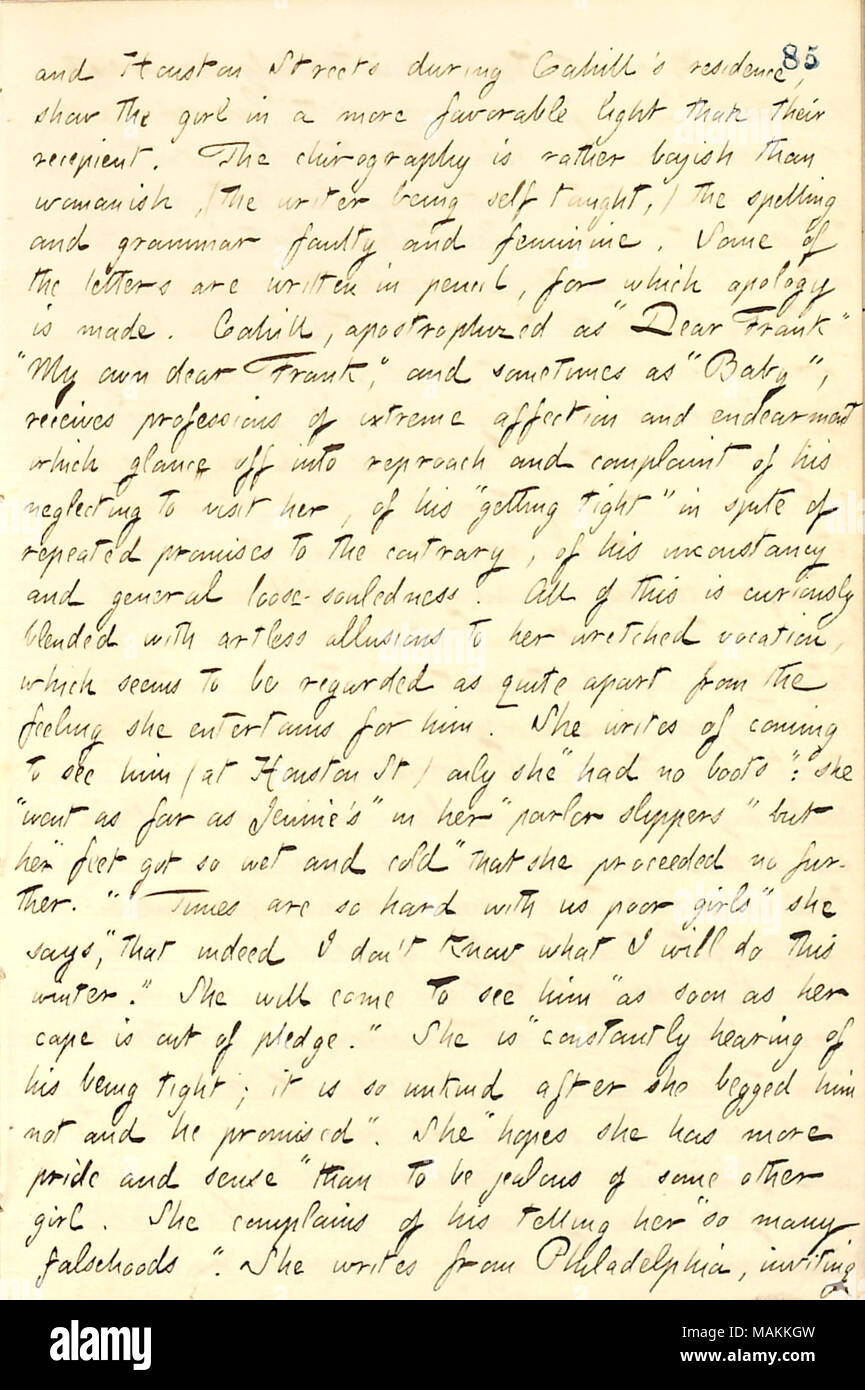 85
and Houston Streets during Cahill's residence,
show the girl in a more favorable light than their
recipient. The chirography is rather boyish than
womanish, (the writer being self taught,) the spelling
and grammar faulty and feminine. Some of
the letters are written in pencil, for which apology
is made. Cahill, apostrophized as "Dear Frank"
"My own dear Frank," and sometimes as "Baby",
receives professions of extreme affection and endearment
which glance off into reproach and complaint of his
neglecting to visit her, of his "getting tight" in spite of
repeated promises to the contrary, of his inconstancy
and general loose-souledness. All of this is curiously
blended with artless allusions to her wretched vocation,
which seems to be regarded as quite apart from the
feeling she entertains for him. She writes of coming
to see him (at Houston St) only she "had no boots": she
"went as far as Jennie's" in her "parlor slippers" but
her "feet got so wet and cold" that she proceeded no fur-
ther. "Times are so hard with us poor girls" she
says, "that indeed I don't know what I will do this
winter." She will come to see him "as soon as her
cape is out of pledge." She is "constantly hearing of
his being tight; it is so unkind after she begged him
not and he promised". She "hopes she has more
pride and sense" than to be jealous of some other
girl. She complains of his telling her "so many
falsehoods". She writes from Philadelphia, inviting
alamy
Image ID: MAKKGW
www.alamy.com